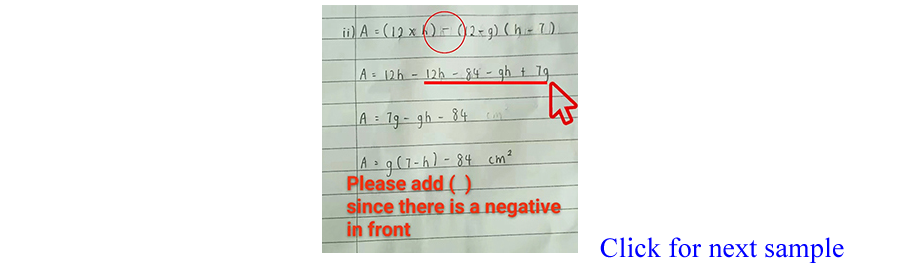 ii) A = (12 x h) - (12-g) (h-7)
A = 12h - 12h - 84 - gh + 7g
A = 7g - gh - 84 cm
A = g(7-h) - 84 cm²
Please add ( )
since there is a negative
in front
Click for next sample